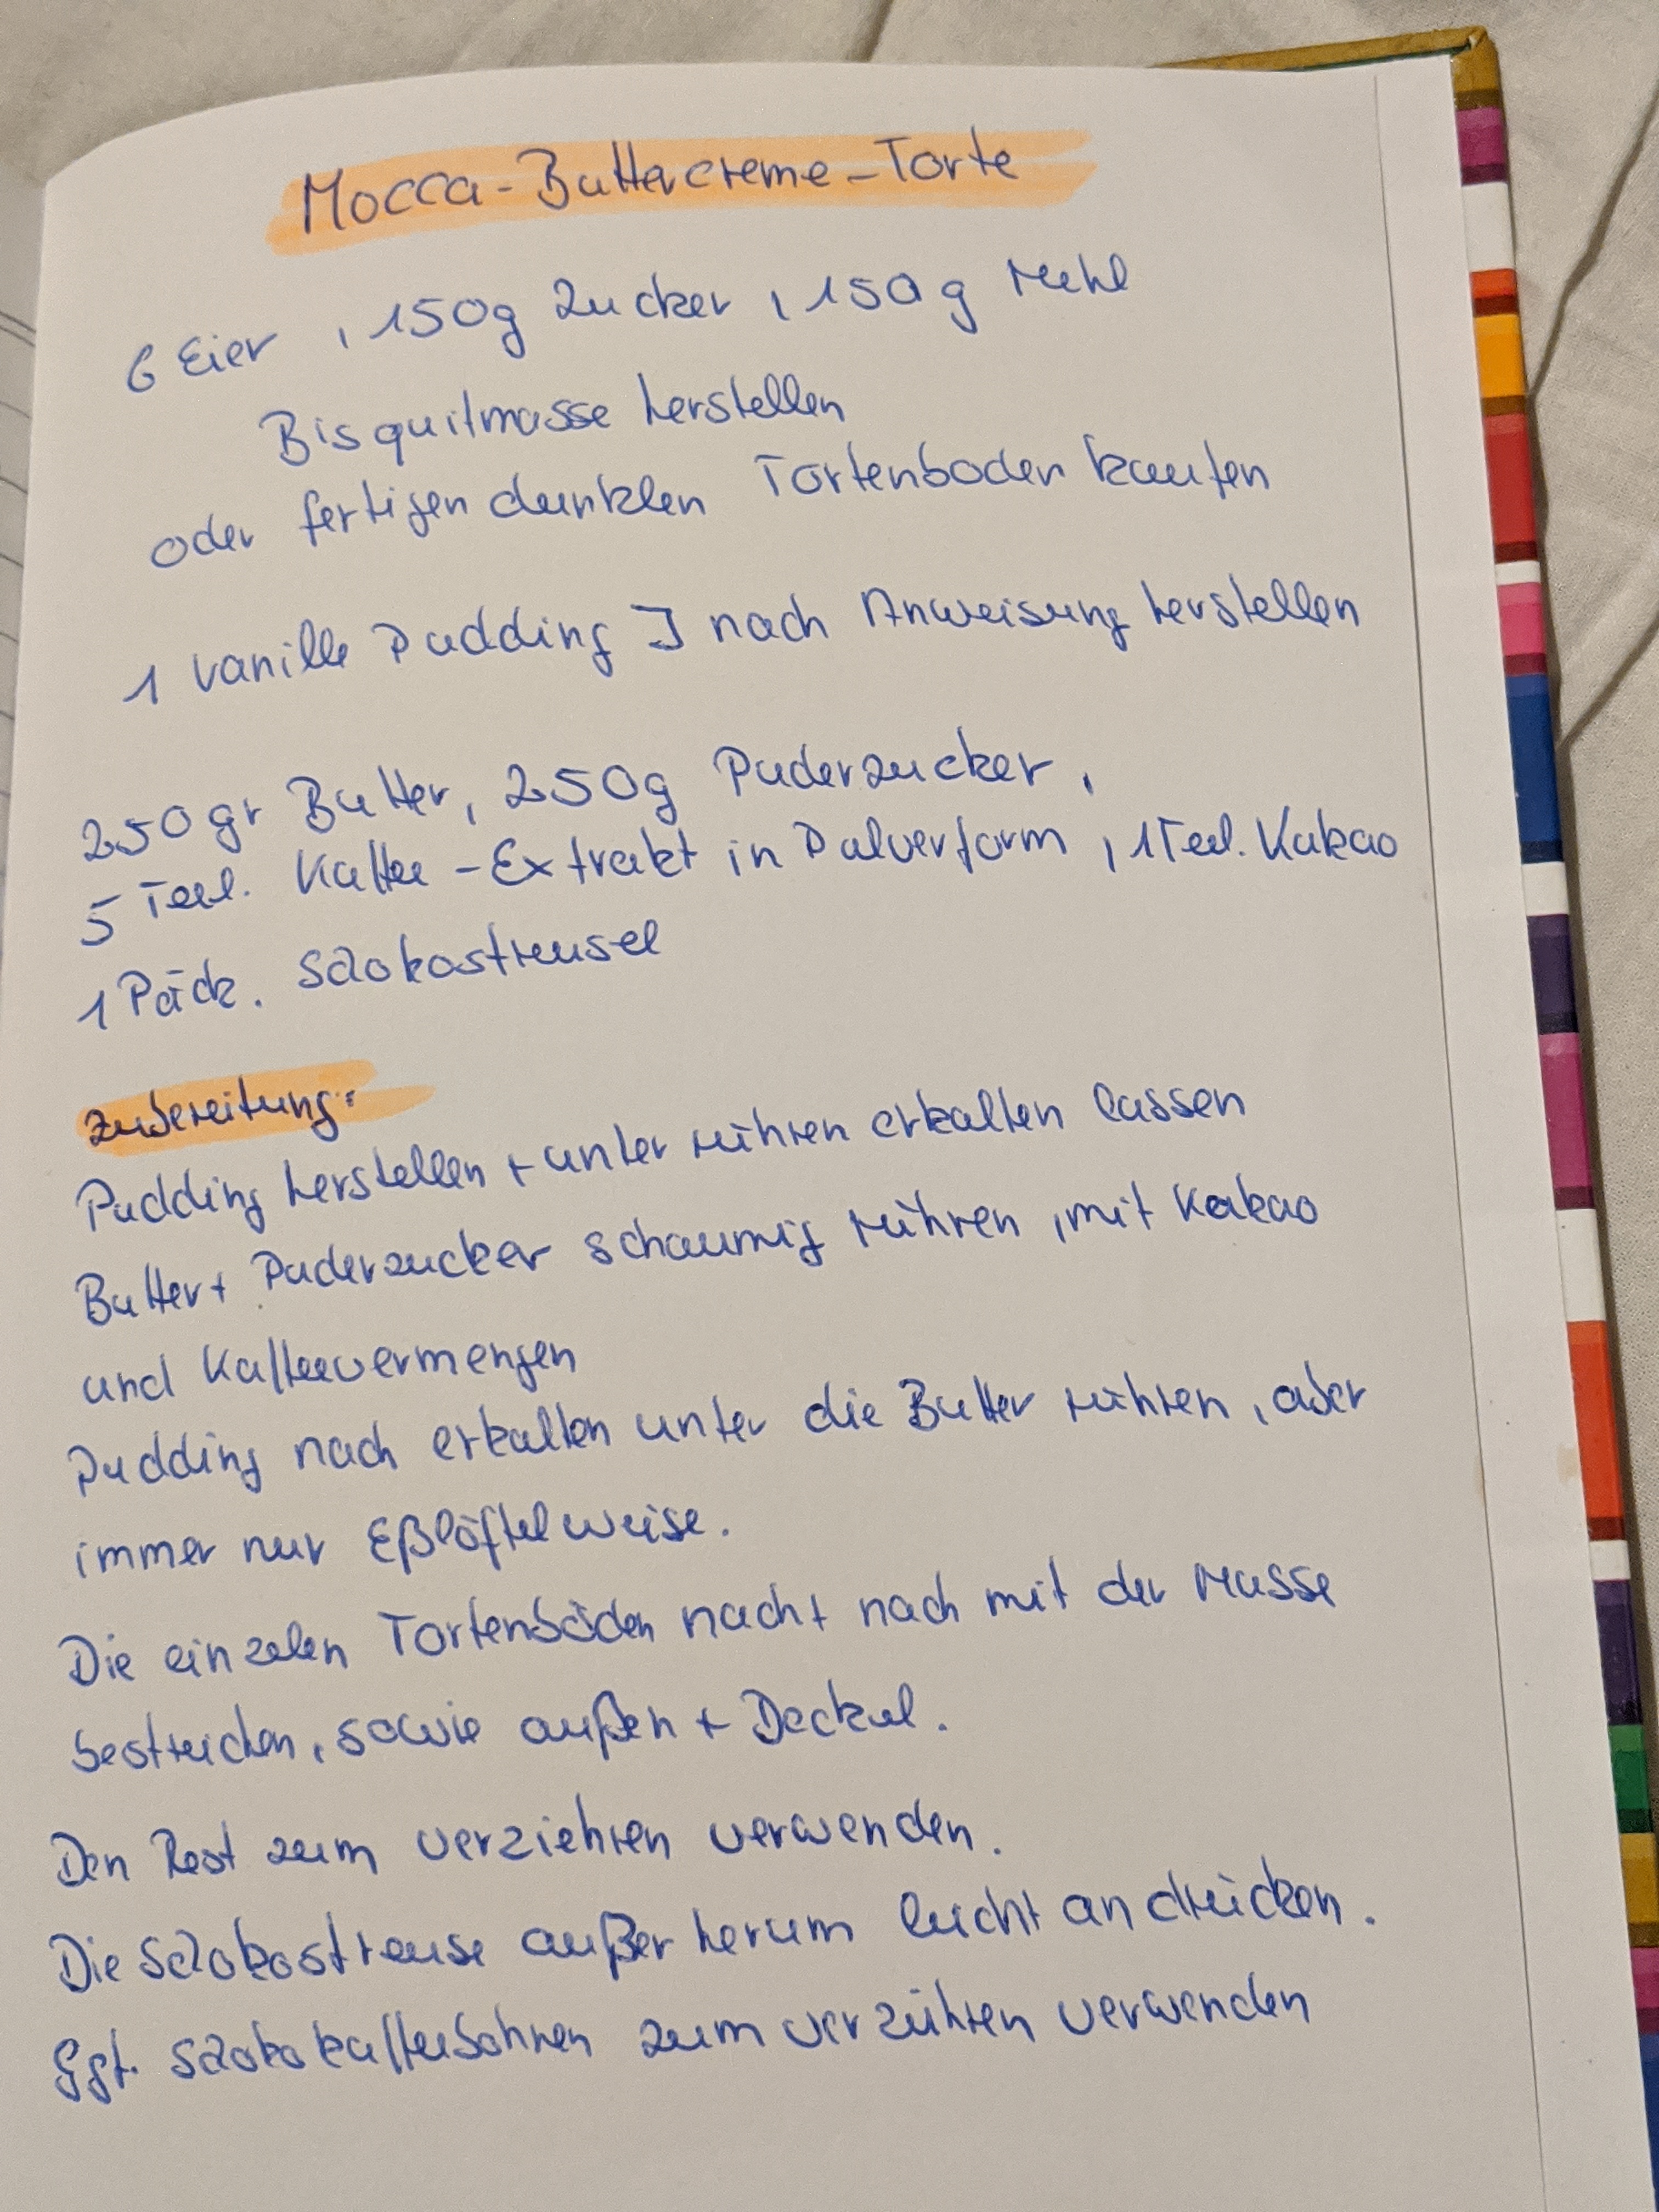 Mocca-Buttercreme-Torte
6 Eier, 150g Zucker, 150g Mehl
Bisquitmasse herstellen
oder fertigen dunklen Tortenboden kaufen
1 Vanille Pudding ] nach Anweisung herstellen
250 gr Butter, 250g Puderzucker,
5 Teel. Kaffee-Extrakt in Pulverform, 1 Teel. Kakao
1 Päck. Schokostreusel
Zubereitung:
Pudding herstellen + unter rühren erkalten lassen
Butter + Puderzucker schaumig rühren, mit Kakao
und Kaffee vermengen
Pudding nach erkalten unter die Butter rühren, aber
immer nur Eßlöffelweise.
Die einzelen Tortenböden nach + nach mit der Masse
bestreichen, sowie außen + Deckel.
Den Rest zum verziehren verwenden.
Die Schokostreuse außer herum leicht andrücken.
Ggf. Schokokaffeebohnen zum verzühren verwenden